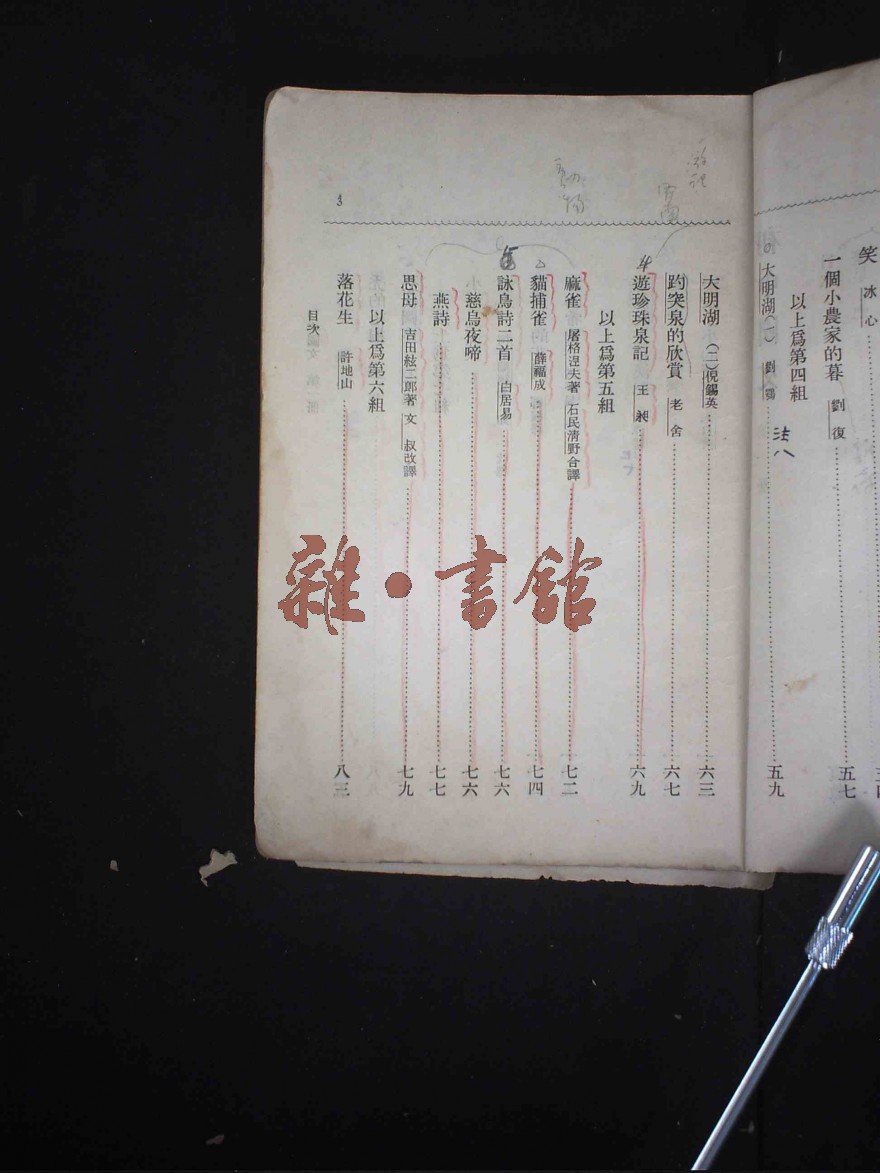 笑 冰心
一個小農家的暮 劉復 五七
以上爲第四組
大明湖(一) 劉鶚 五九
大明湖(二) 倪錫英 六三
趵突泉的欣賞 老舍 六七
遊珍珠泉記 王昶 六九
以上爲第五組
麻雀 屠格涅夫著 石民清野合譯 七二
貓捕雀 薛福成 七四
詠鳥詩二首 白居易 七六
慈烏夜啼 七六
燕詩 七七
思母 吉田絃二郎著 文叔改譯 七九
以上爲第六組
落花生 許地山 八三
目次
3
4
動物
雜·書館